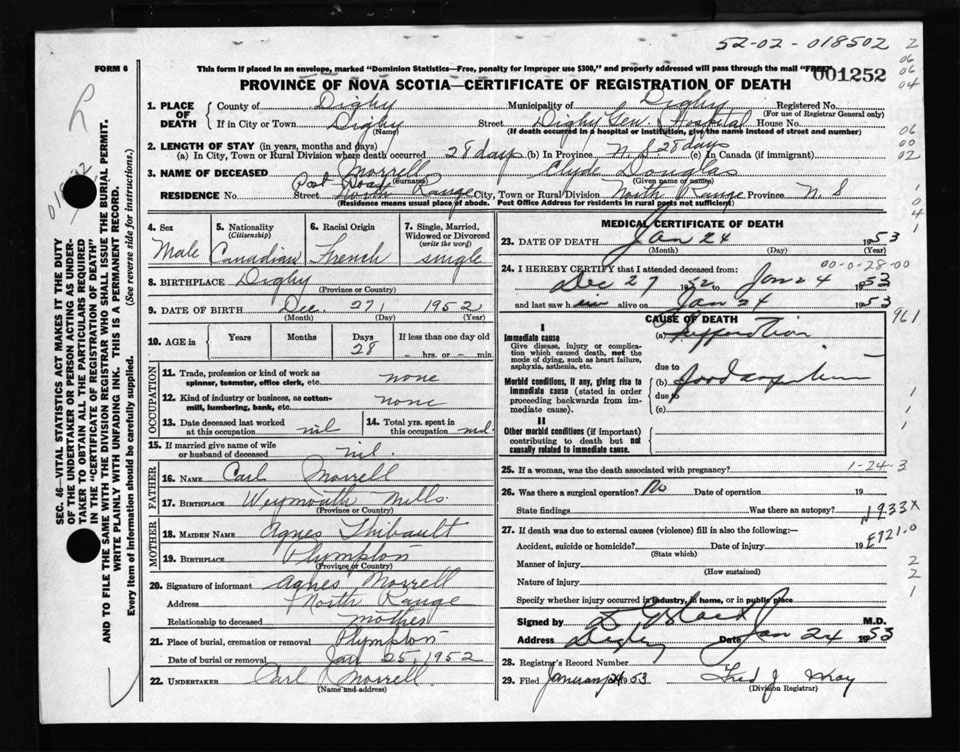 52-02-018502
FORM 6
This form if placed in an envelope, marked "Dominion Statistics—Free, penalty for improper use $300," and properly addressed will pass through the mail "FREE"
001252
PROVINCE OF NOVA SCOTIA—CERTIFICATE OF REGISTRATION OF DEATH
1. PLACE OF DEATH County of Digby Municipality of Digby Registered No.
(For use of Registrar General only)
If in City or Town Digby Street Digby Gen. Hospital House No.
(Name) (If death occurred in a hospital or institution, give the name instead of street and number)
2. LENGTH OF STAY (in years, months and days)
(a) In City, Town or Rural Division where death occurred 28 days (b) In Province N.S 28 days (c) in Canada (if immigrant)
3. NAME OF DECEASED Morrell Clyde Douglas
(Surname) (Given name or names)
RESIDENCE Post Road Street North Range City, Town or Rural Division North Range Province N. S
(Residence means usual place of abode. Post Office Address for residents in rural parts not sufficient)
4. Sex Male
5. Nationality (Citizenship) Canadian
6. Racial Origin French
7. Single, Married, Widowed or Divorced (write the word) single
8. BIRTHPLACE Digby
(Province or Country)
9. DATE OF BIRTH Dec. 27 1952
(Month) (Day) (Year)
10. AGE in Years Months Days 28 If less than one day old
– hrs. or – min.
OCCUPATION
11. Trade, profession or kind of work as spinner, teamster, office clerk, etc. none
12. Kind of industry or business, as cotton-mill, lumbering, bank, etc. none
13. Date deceased last worked at this occupation nil
14. Total yrs. spent in this occupation nil
15. If married give name of wife or husband of deceased nil.
FATHER
16. NAME Carl Morrell
17. BIRTHPLACE Weymouth Mills
(Province or Country)
MOTHER
18. MAIDEN NAME Agnes Thibault
19. BIRTHPLACE Plympton
(Province or Country)
20. Signature of informant Agnes Morrell
Address North Range
Relationship to deceased mother
21. Place of burial, cremation or removal Plympton
Date of burial or removal Jan 25, 1952
22. UNDERTAKER Carl Morrell
(Name and address)
MEDICAL CERTIFICATE OF DEATH
23. DATE OF DEATH Jan 24 1953
(Month) (Day) (Year)
00-0-28-00
24. I HEREBY CERTIFY that I attended deceased from:
Dec 27 1952 to Jan 24 1953
and last saw him alive on Jan 24 1953
CAUSE OF DEATH
961
I
Immediate cause (a) Suffocation
Give disease, injury or complication which caused death, not the mode of dying, such as heart failure, asphyxia, asthenia, etc.
due to
Morbid conditions, if any, giving rise to immediate cause (stated in order proceeding backwards from immediate cause).
(b) food aspiration
due to
(c)
II
Other morbid conditions (if important) contributing to death but not causally related to immediate cause.
25. If a woman, was the death associated with pregnancy?
1-24-3
26. Was there a surgical operation? No Date of operation 19
State findings Was there an autopsy?
N933X
27. If death was due to external causes (violence) fill in also the following:—
E921.0
Accident, suicide or homicide? Date of injury 19
(State which)
Manner of injury
(How sustained)
Nature of injury
Specify whether injury occurred in industry, in home, or in public place
Signed by M.D.
Address Digby Date Jan 24 1953
28. Registrar's Record Number
29. Filed January 24 1953 Fred J
(Division Registrar)
SEC. 46—VITAL STATISTICS ACT MAKES IT THE DUTY
OF THE UNDERTAKER OR PERSON ACTING AS UNDER-
TAKER TO OBTAIN ALL THE PARTICULARS REQUIRED
IN THE "CERTIFICATE OF REGISTRATION OF DEATH"
AND TO FILE THE SAME WITH THE DIVISION REGISTRAR WHO SHALL ISSUE THE BURIAL PERMIT.
WRITE PLAINLY WITH UNFADING INK. THIS IS A PERMANENT RECORD.
Every item of information should be carefully supplied. (See reverse side for instructions.)